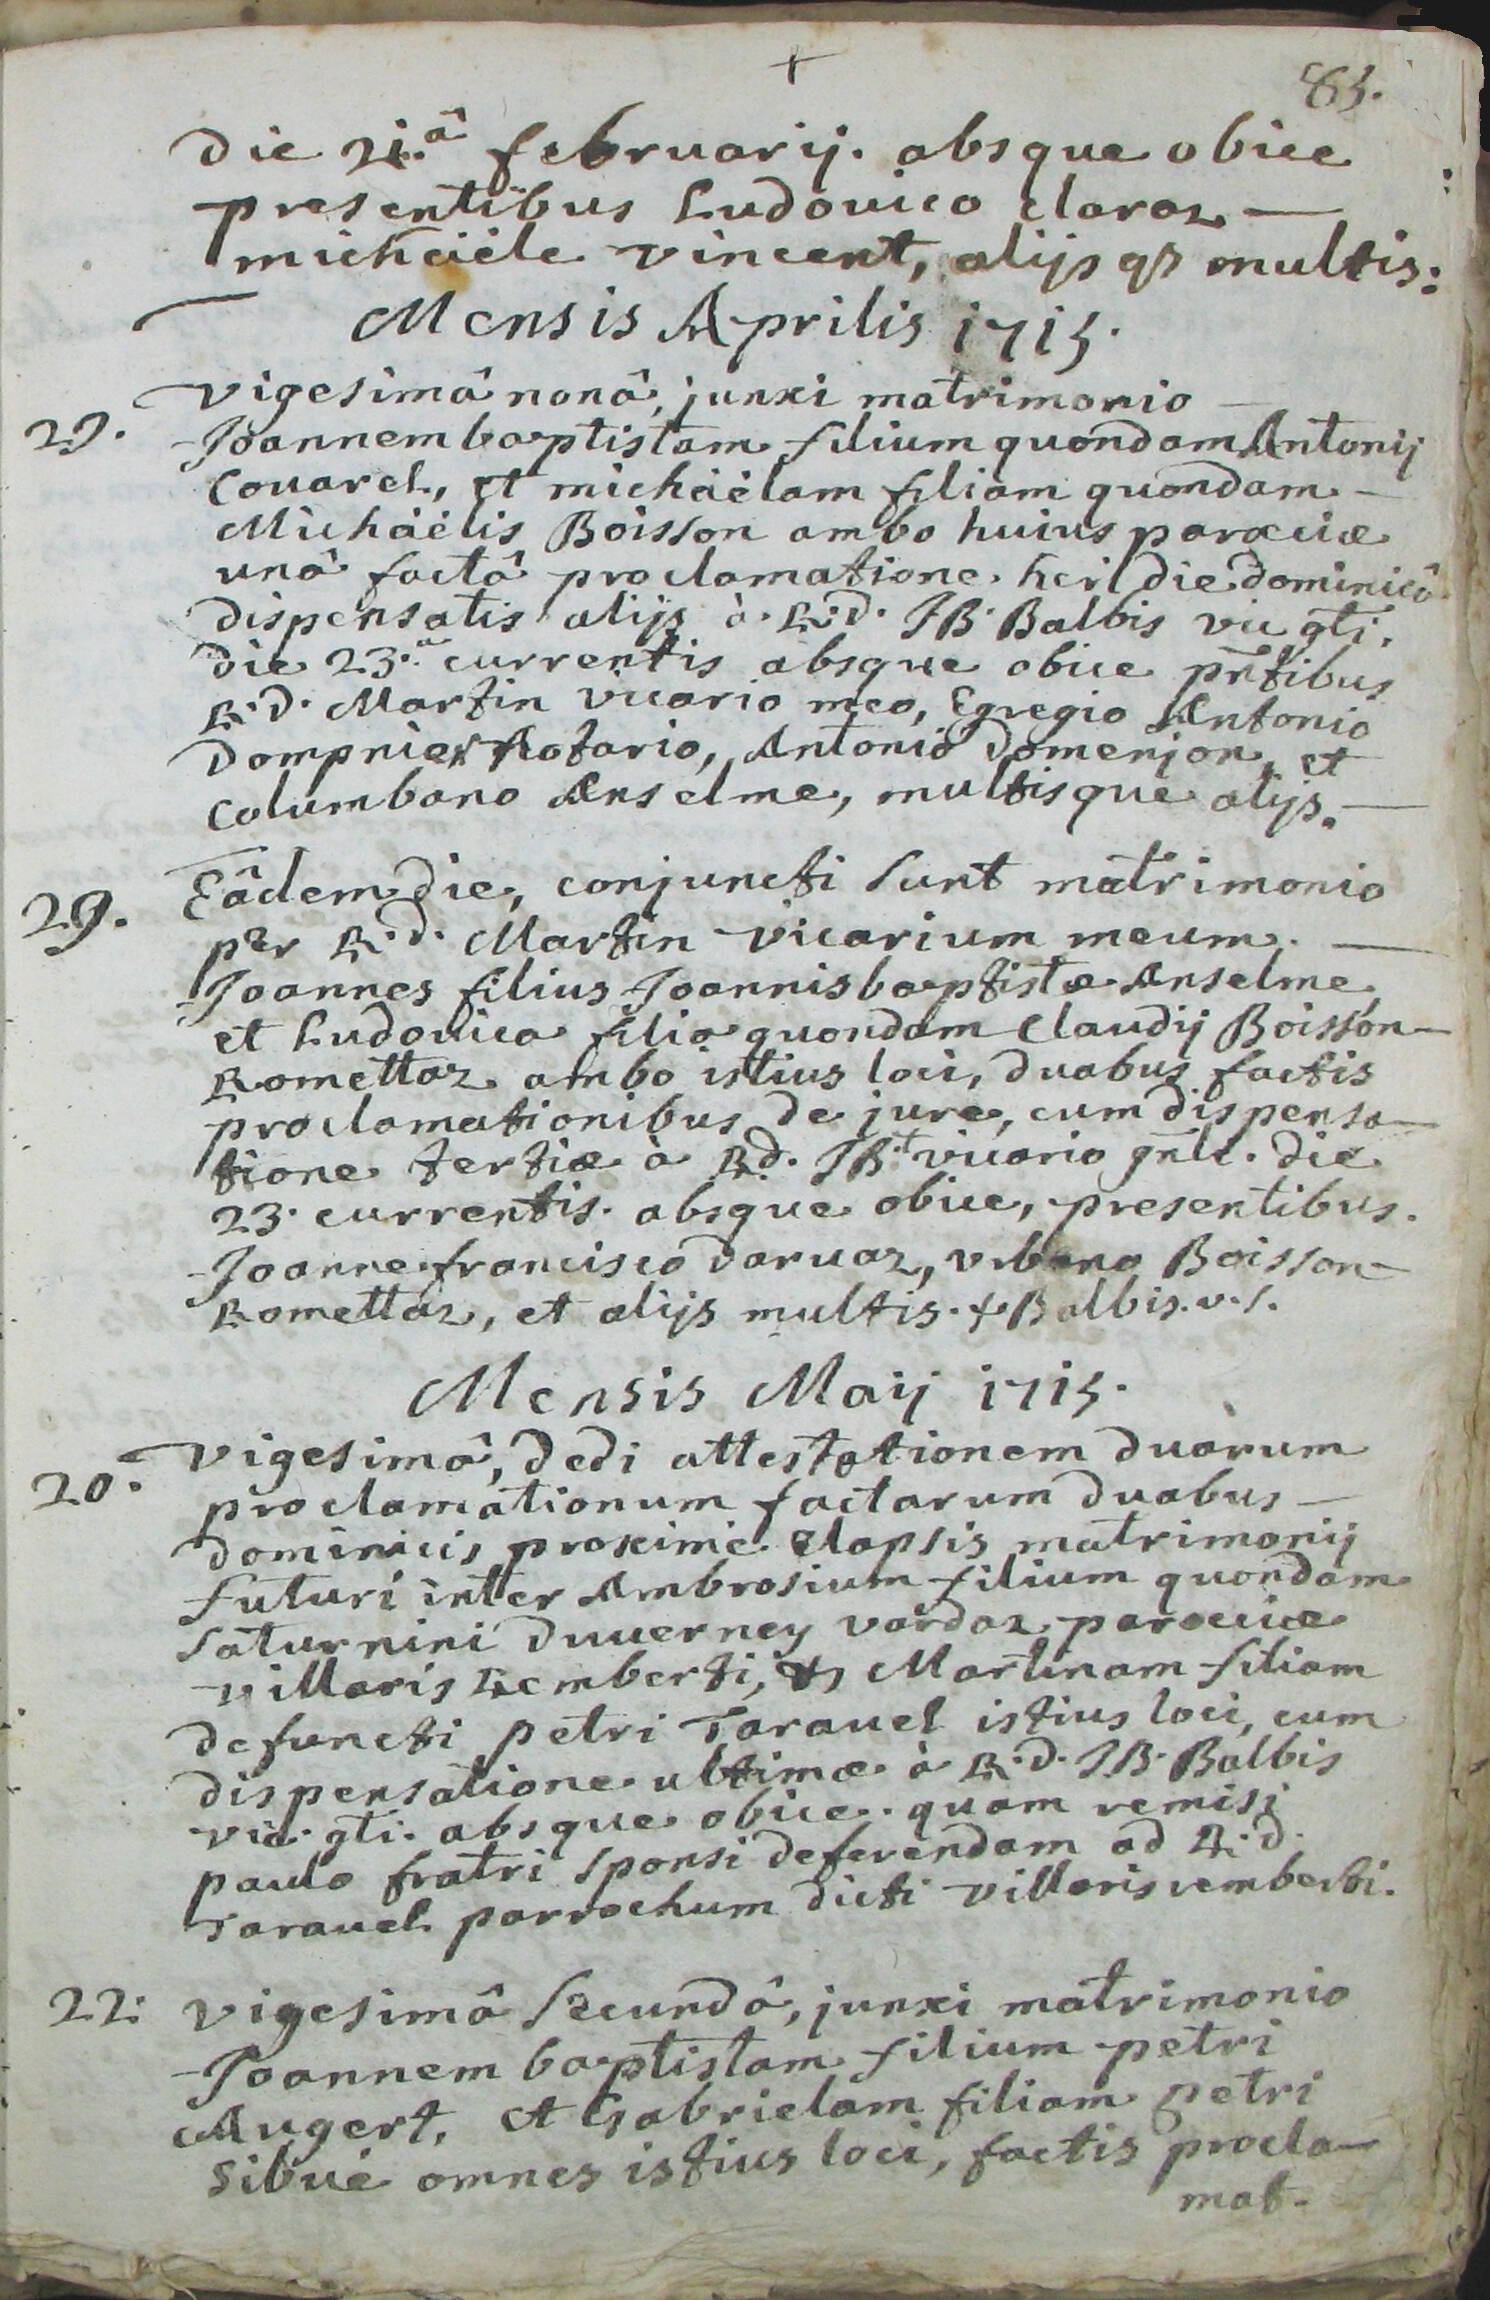 83.
die 21.â februarij. absque obice
presentibus Ludovico claraz —
michaële vincent, alijs q3 multis:
Mensis Aprilis 1715.
Vigesimâ nonâ, junxi matrimonio —
29. Joannem baptistam filium quondam Antonij
Couarel, et michaëlam filiam quondam —
Michaëlis Boisson ambo huius parœciæ
unâ factâ proclamatione heri die dominicâ
dispensatis alijs à R.d. JB. Balbis vic gti.
die 23.â currentis absque obice pntibus
R.d. Martin vicario meo, Egregio Antonio
Dompnier Notario, Antonio domenjon, et
Columbano Anselme, multisque alijs. —
29. Eâdem die, conjuncti sunt matrimonio
per R.d. Martin vicarium meum. —
Joannes filius Joannisbaptistæ Anselme
et Ludovica filia quondam Claudij Boisson —
Romettaz ambo istius loci, duabus factis
proclamationibus de jure, cum dispensa—
tione tertiæ à Rd. JB.t vicario gnli. die
23. currentis. absque obice, presentibus.
Joanne francisco daruaz, vrbano Boisson —
Romettaz, et alijs multis. + Balbis. v. s.
Mensis Maij 1715.
20. Vigesimâ, dedi attestationem duarum
proclamationum factarum duabus —
dominicis proxime elapsis matrimonij
futuri inter Ambrosium filium quondam
Saturnini duverney vardaz parœciæ
villaris Remberti, et Martinam filiam
defuncti petri Taravel istius loci, cum
dispensatione ultimæ à R.d. JB. Balbis
vic. gti. absque obice. quam remisi
paulo fratri sponsi deferendam ad R.d.
Taravel parrochum dicti villaris remberti.
22. Vigesimâ Secundâ, junxi matrimonio
Joannem baptistam filium petri
Augert, et Gabrielam filiam petri
Sibué omnes istius loci, factis procla—
mat-